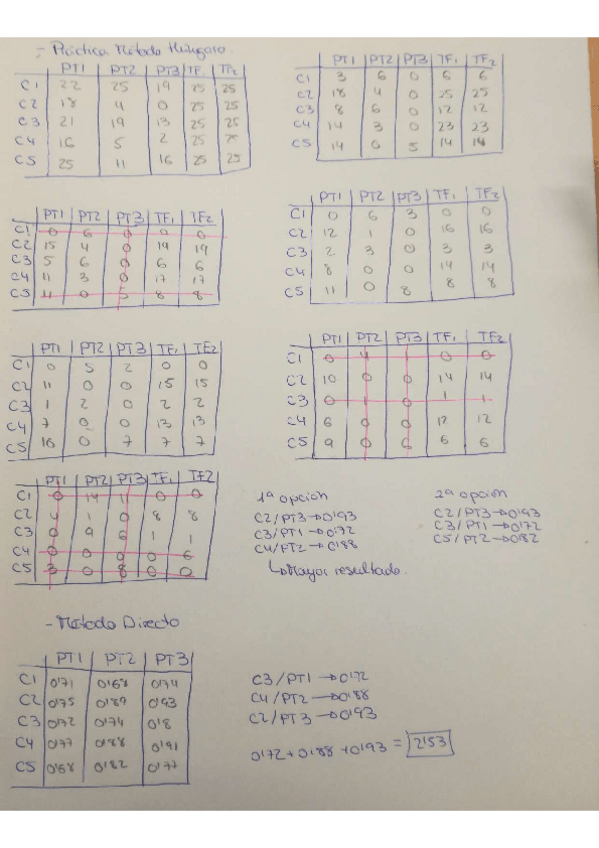 - Práctica Método Húngaro.
PT1 PT2 PT3 TF1 TF2
C1 22 25 19 25 25
C2 18 4 0 25 25
C3 21 19 13 25 25
C4 16 5 2 25 25
C5 25 11 16 25 25
PT1 PT2 PT3 TF1 TF2
C1 3 6 0 6 6
C2 18 4 0 25 25
C3 8 6 0 12 12
C4 14 3 0 23 23
C5 14 0 5 14 14
PT1 PT2 PT3 TF1 TF2
C1 0 6 0 0 0
C2 15 4 0 19 19
C3 5 6 0 6 6
C4 11 3 0 17 17
C5 11 0 5 8 8
PT1 PT2 PT3 TF1 TF2
C1 0 6 3 0 0
C2 12 1 0 16 16
C3 2 3 0 3 3
C4 8 0 0 14 14
C5 11 0 8 8 8
PT1 PT2 PT3 TF1 TF2
C1 0 5 2 0 0
C2 11 0 0 15 15
C3 1 2 0 2 2
C4 7 0 0 13 13
C5 10 0 7 7 7
PT1 PT2 PT3 TF1 TF2
C1 0 4 1 0 0
C2 10 0 0 14 14
C3 0 1 0 1 1
C4 6 0 0 12 12
C5 9 0 6 6 6
PT1 PT2 PT3 TF1 TF2
C1 0 14 11 0 0
C2 4 1 0 8 8
C3 0 9 6 1 1
C4 0 0 0 0 6
C5 3 0 8 0 0
1ª opcion
C2/PT3→0'93
C3/PT1→0'72
C4/PT2→0'88
↳Mayor resultado.
2ª opcion
C2/PT3→0'93
C3/PT1→0'72
C5/PT2→0'82
- Método Directo
PT1 PT2 PT3
C1 0'71 0'68 0'74
C2 0'75 0'89 0'93
C3 0'72 0'74 0'8
C4 0'77 0'88 0'91
C5 0'68 0'82 0'77
C3/PT1→0'72
C4/PT2→0'88
C2/PT3→0'93
0'72+0'88+0'93 = 2'53